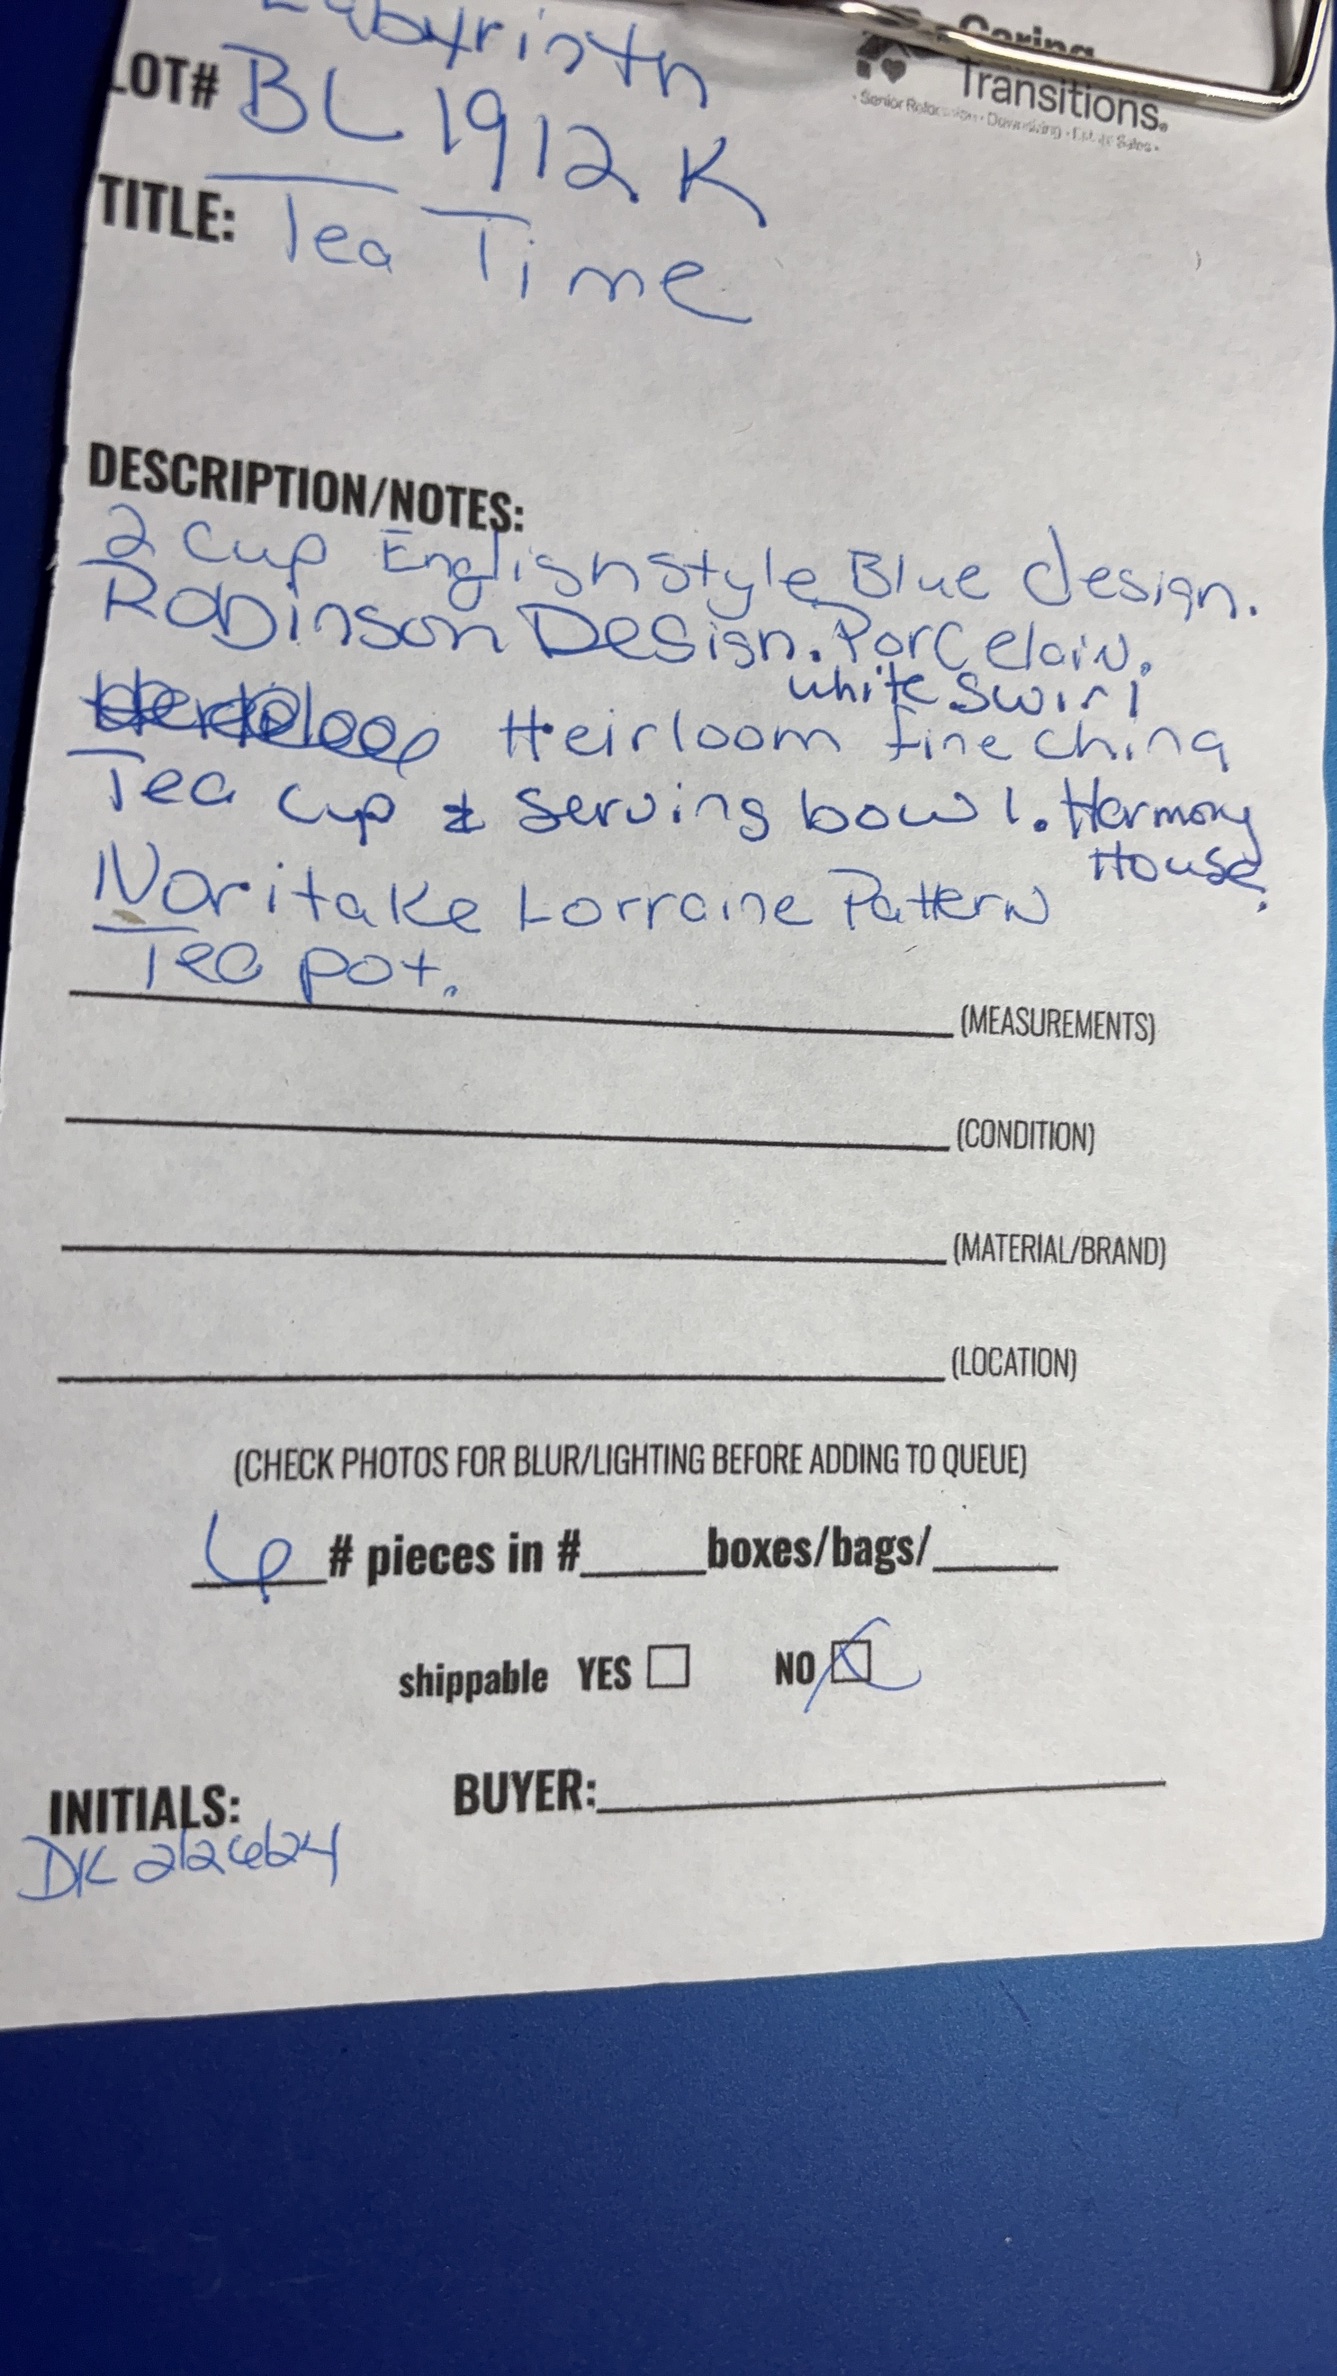 Labyrinth
Caring
Transitions.
• Senior Relocation • Downsizing • Estate Sales •
LOT# BL 1912 K
TITLE: Tea Time
DESCRIPTION/NOTES:
2 Cup English style Blue design.
Robinson Design. Porcelain.
white swirl
Heirloom fine china
Tea cup & serving bowl. Harmony
House.
Noritake Lorraine Pattern
Tea pot.
(MEASUREMENTS)
(CONDITION)
(MATERIAL/BRAND)
(LOCATION)
(CHECK PHOTOS FOR BLUR/LIGHTING BEFORE ADDING TO QUEUE)
6 # pieces in #_____boxes/bags/_____
shippable YES ☐ NO ☒
INITIALS: BUYER:
DK 22624